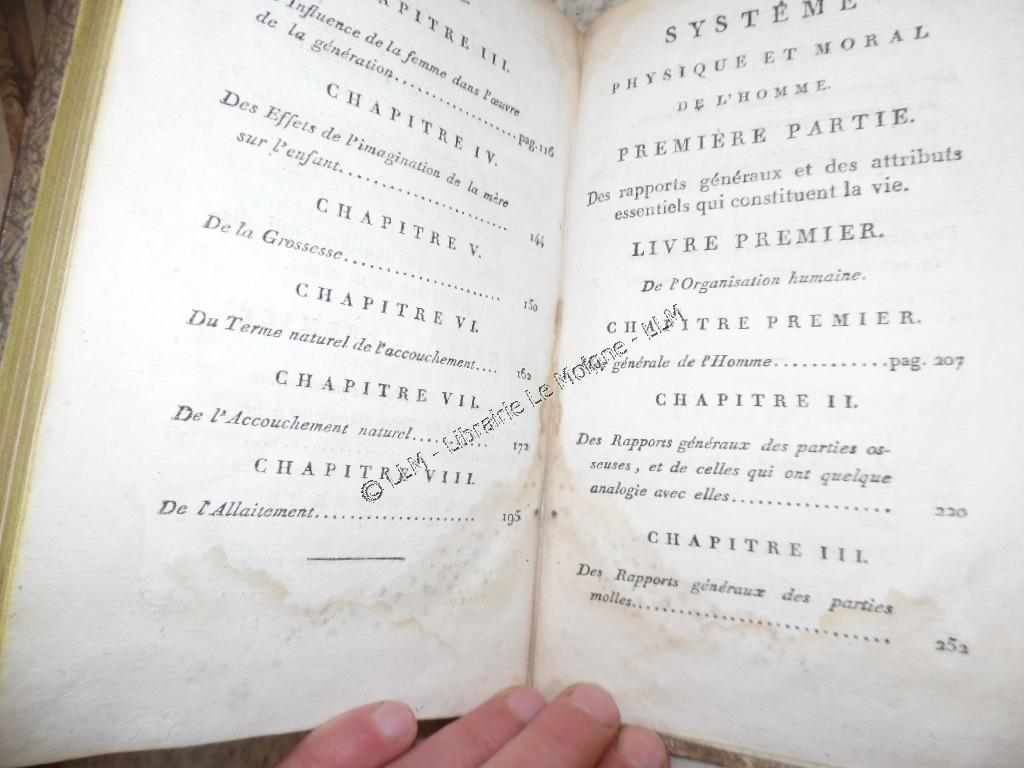 CHAPITRE III.
Influence de la femme dans l'œuvre
de la génération..................pag. 116
CHAPITRE IV.
Des Effets de l'imagination de la mère
sur l'enfant.................. 144
CHAPITRE V.
De la Grossesse.................. 150
CHAPITRE VI.
Du Terme naturel de l'accouchement.... 162
CHAPITRE VII.
De l'Accouchement naturel........... 172
CHAPITRE VIII.
De l'Allaitement.................. 195
SYSTÊME
PHYSIQUE ET MORAL
DE L'HOMME.
PREMIÈRE PARTIE.
Des rapports généraux et des attributs
essentiels qui constituent la vie.
LIVRE PREMIER.
De l'Organisation humaine.
CHAPITRE PREMIER.
générale de l'Homme............pag. 207
CHAPITRE II.
Des Rapports généraux des parties os-
seuses, et de celles qui ont quelque
analogie avec elles.................. 220
CHAPITRE III.
Des Rapports généraux des parties
molles.............................. 252
© LLM - Librairie Le Moigne - LLM